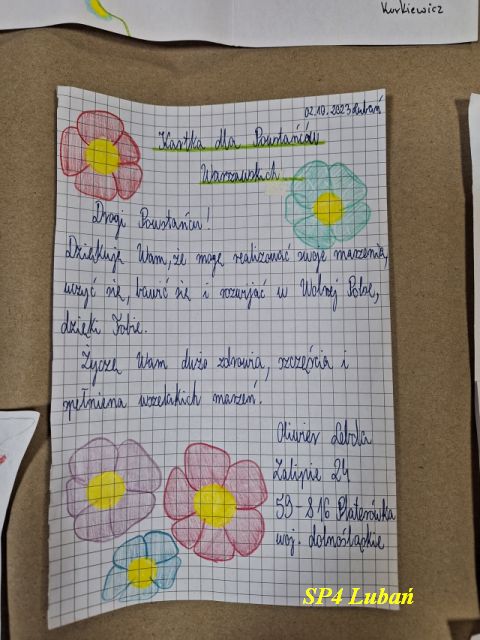 Kurkiewicz
02.10.2023 Lubań
Kartka dla Powstańców
Warszawskich
Drogi Powstańcu!
Dziękuję Wam, że mogę realizować swoje marzenia,
uczyć się, bawić się i rozwijać w Wolnej Polsce,
dzięki Tobie.
Życzę Wam dużo zdrowia, szczęścia i
spełniena wszelakich marzeń.
Oliwier Lebda
Zalipie 24
59-816 Platerówka
woj. dolnośląskie
SP4 Lubań